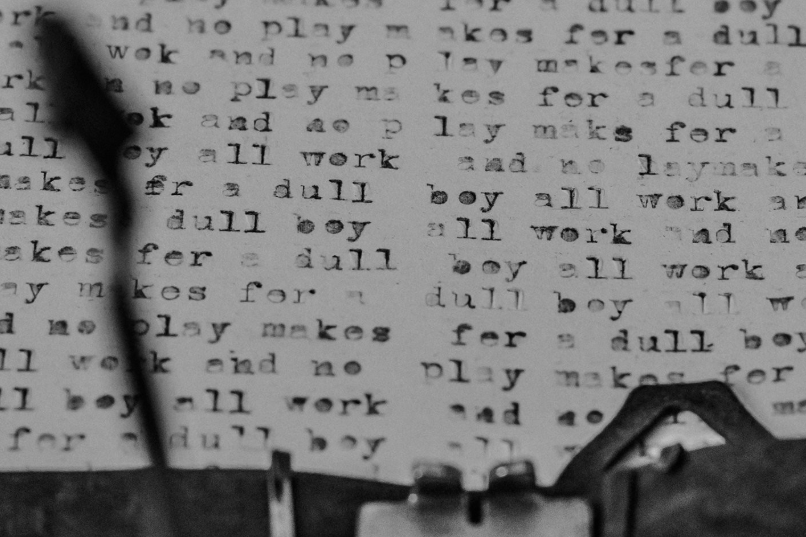 and no play m akes fer a dull
wok and no p lay makesfer a
no play ma kes for a dull
and no p lay maks fer a
all work and no laymake
fr a dull boy all work an
akes dull boy all work and no
akes fer a dull boy all work a
ay makes for a dull boy all w
d no play makes fer a dull boy
ll work and no play makes for
ll boy all work and no
for a dull boy all